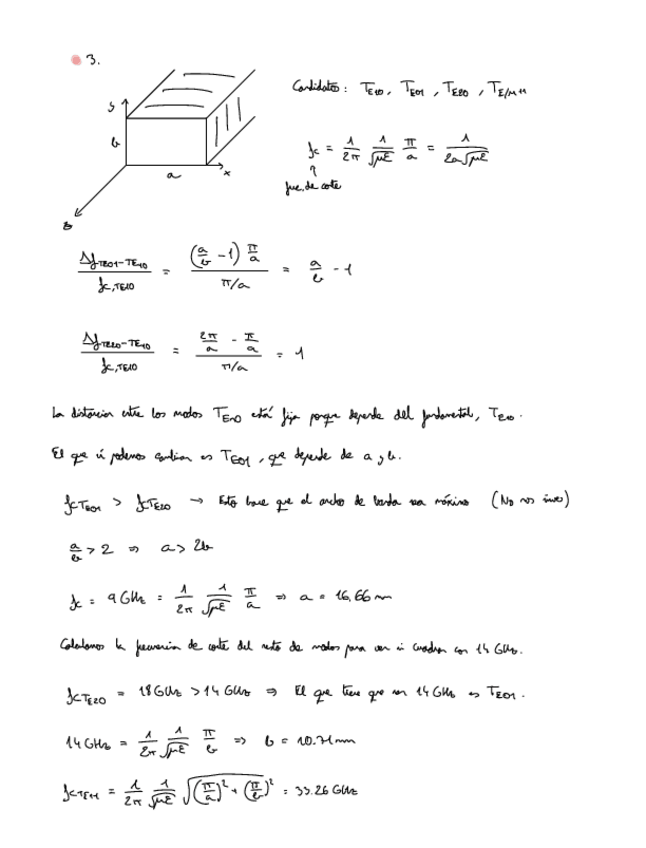 3.
y
b
a
x
z
Candidatos: TE10, TE01, TE20, TE/M11
fc = 1/2π 1/√με π/a = 1/2a√με
frec. de corte
ΔfTE01-TE10 / fc,TE10 = (a/b - 1) π/a / π/a = a/b - 1
ΔfTE20-TE10 / fc,TE10 = 2π/a - π/a / π/a = 1
La distancia entre los modos TEn0 está fija porque depende del fundamental, TE10.
El que sí podemos cambiar es TE01, que depende de a y b.
fcTE01 > fcTE20 → Esto hace que el ancho de banda sea máximo (No nos sirve)
a/b > 2 ⇒ a > 2b
fc = 9 GHz = 1/2π 1/√με π/a ⇒ a = 16,66 mm
Calculamos la frecuencia de corte del resto de modos para ver si cuadran con 14 GHz.
fcTE20 = 18 GHz > 14 GHz ⇒ El que tiene que ser 14 GHz es TE01.
14 GHz = 1/2π 1/√με π/b ⇒ b = 10.71 mm
fcTE11 = 1/2π 1/√με √(π/a)² + (π/b)² = 33.26 GHz